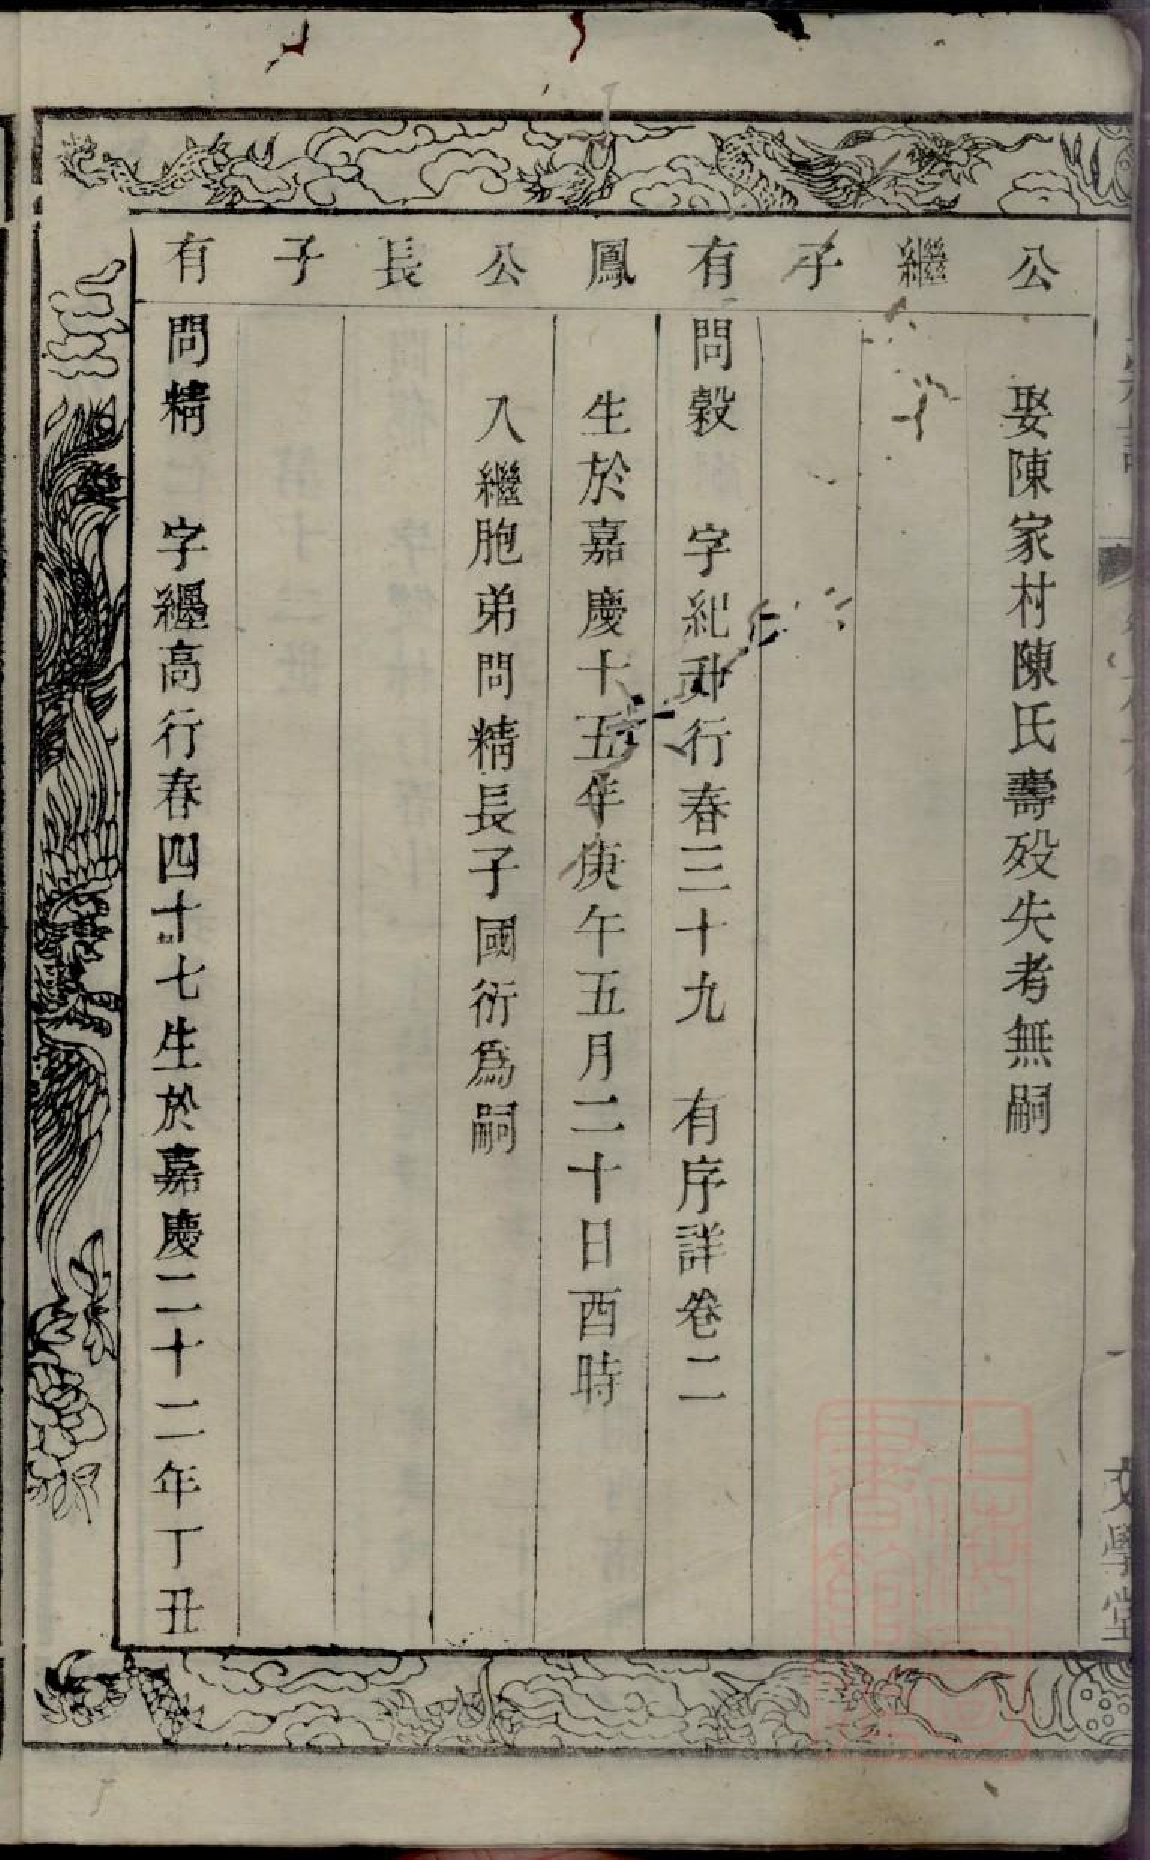 公繼子有鳳公長子有
娶陳家村陳氏壽殁失考無嗣
問穀　字紀升行春三十九　有序詳卷二
生於嘉慶十五年庚午五月二十日酉時
入繼胞弟問精長子國衍爲嗣
問精　字繼高行春四十七生於嘉慶二十二年丁丑
文學堂